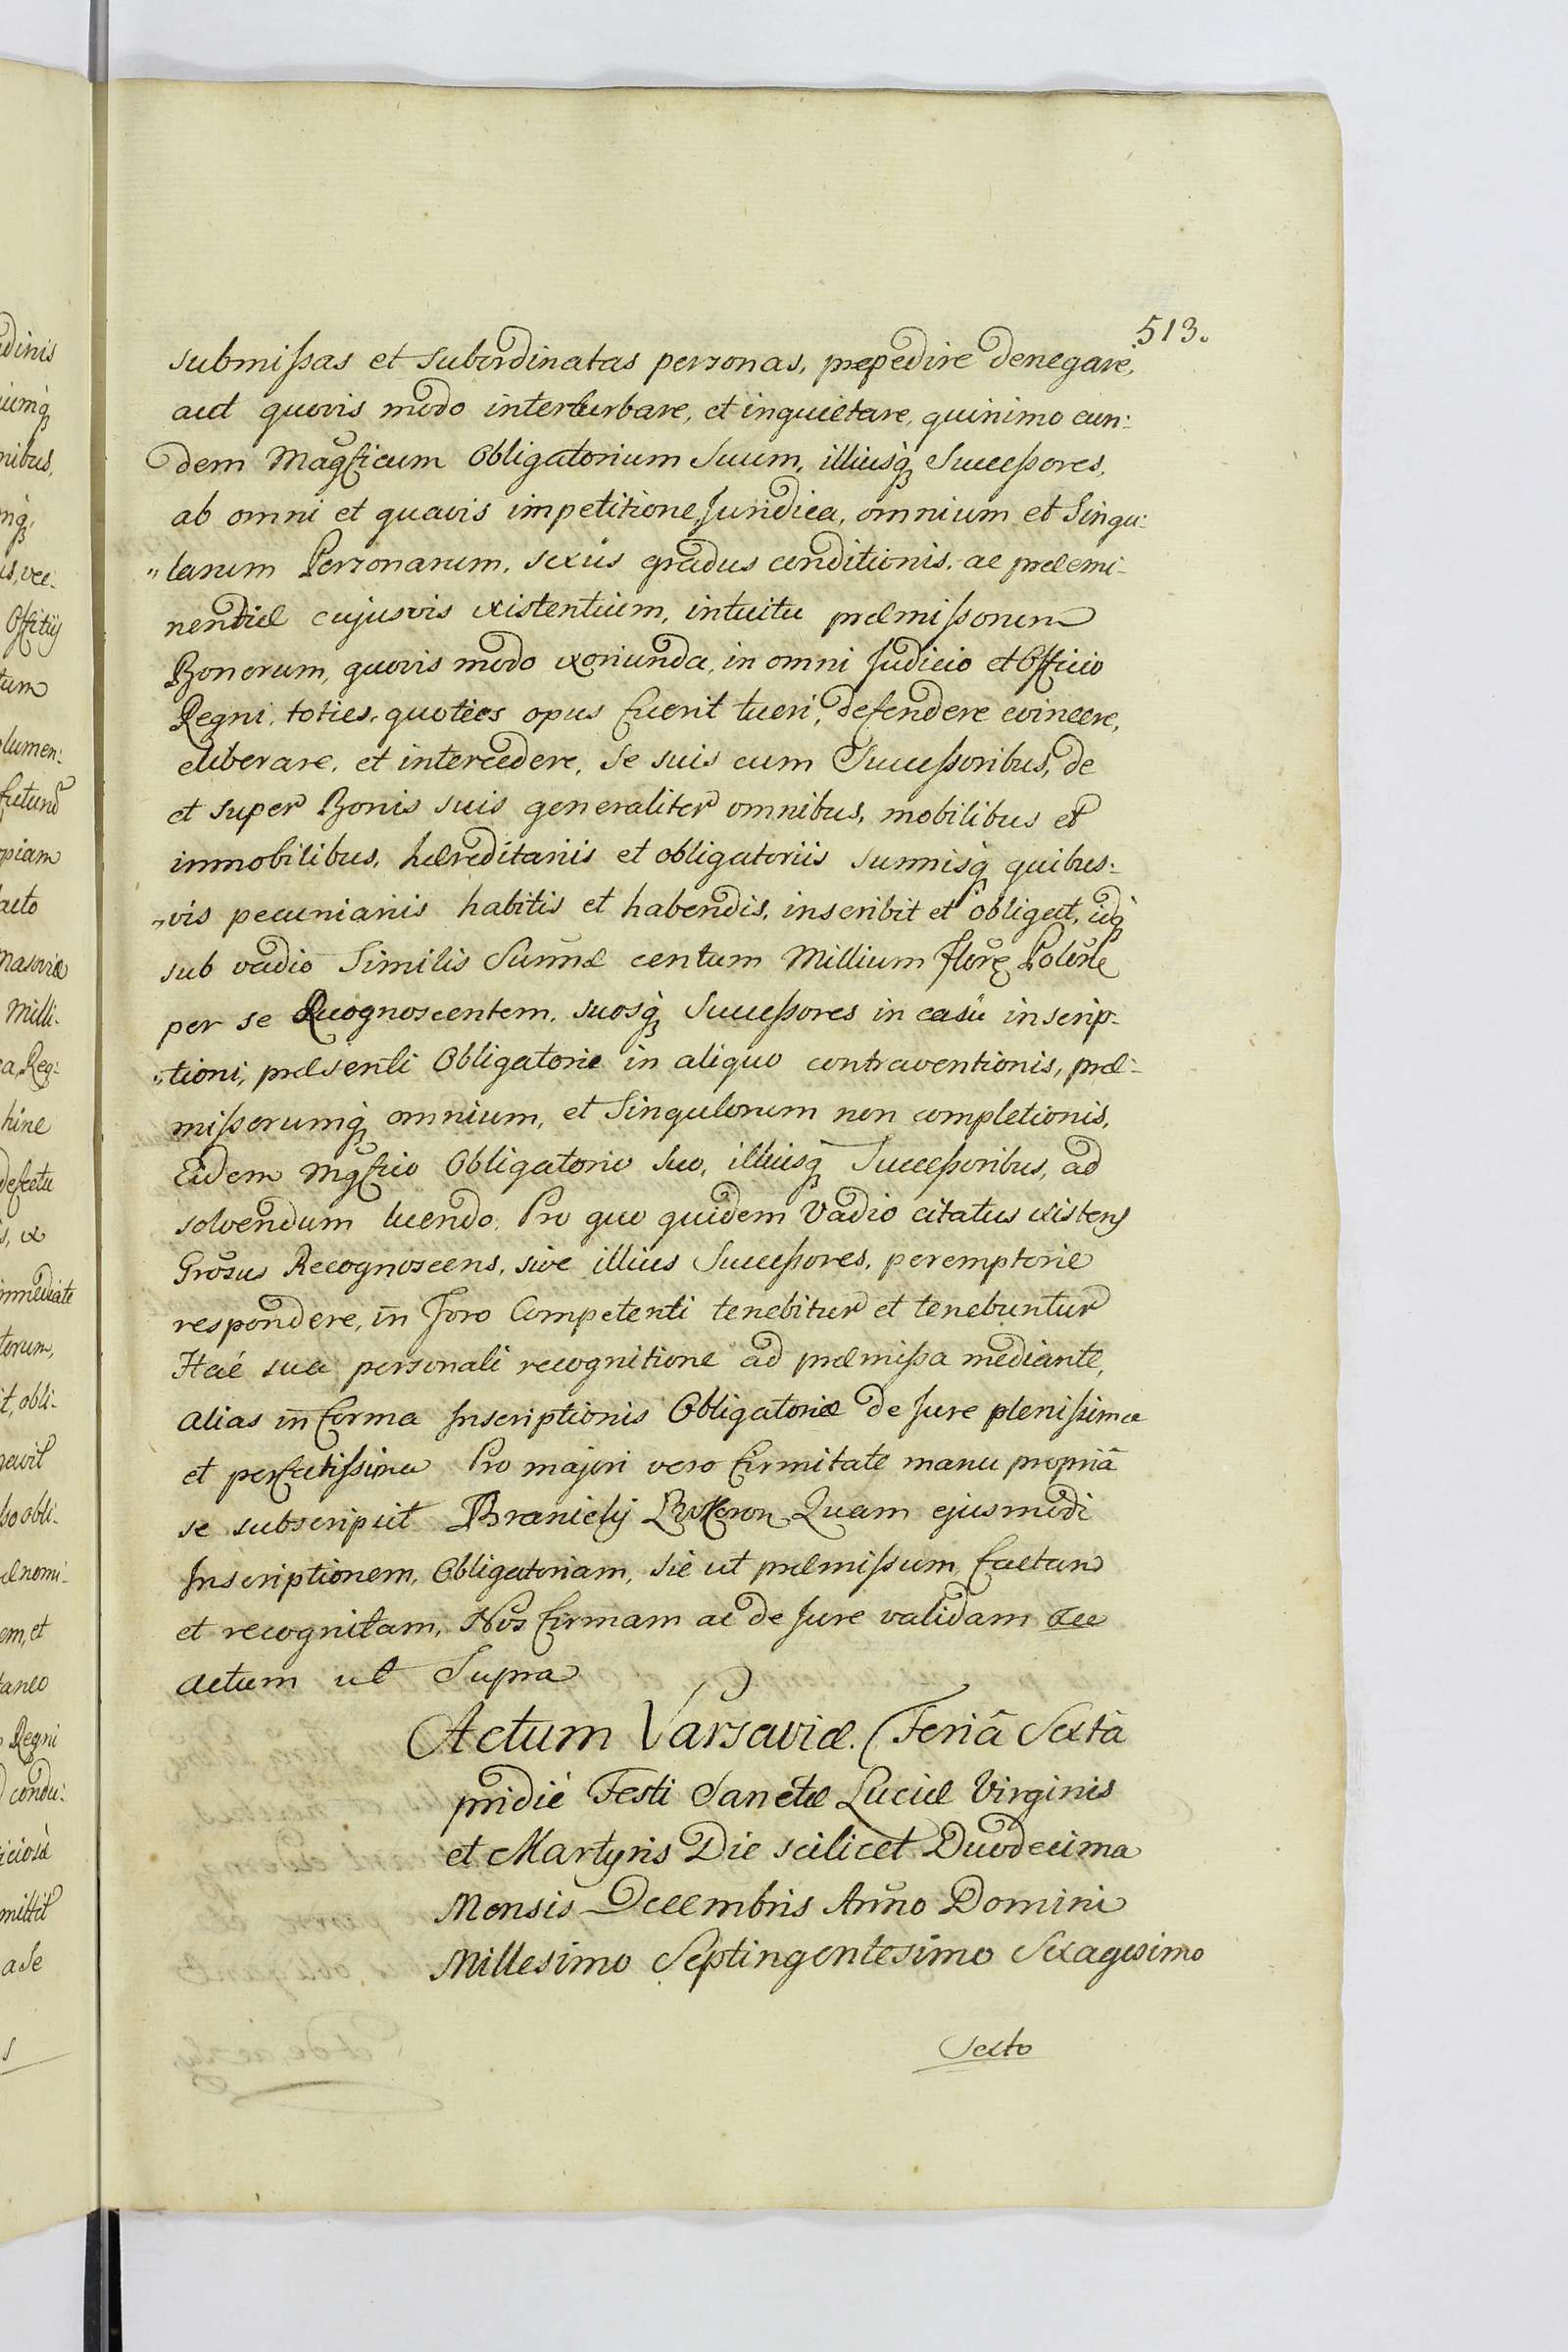 513.
submißas et subordinatas personas, præpedire denegare,
aut quovis modo interturbare, et inquietare, quinimo eun:
dem Magficum Obligatorium Suum, illiusq Succeßores,
ab omni et quavis impetitione Juridica, omnium et Singu:
„larum Personarum, sexûs gradus conditionis, ac præemi-
nentiæ cujusvis existentium, intuitu præmißorum
Bonorum, quovis modo exoriunda, in omni Judicio et Officio
Regni, toties, quoties opus fuerit tueri, defendere evincere,
eliberare, et intercedere, Se suis cum Succeßoribus, de
et super Bonis suis generaliter omnibus, mobilibus et
immobilibus, hæreditariis et obligatoriis summisq quibus:
„vis pecuniariis habitis et habendis, inscribit et obligat, idq
sub vadio Similis Summæ centum Millium Flore Polone
per se Recognoscentem, suosq Succeßores in casû inscrip-
„tioni, præsenti Obligatorie in aliquo contraventionis, præ-
mißorumq omnium, et Singulorum non completionis,
Eidem Mgfico Obligatorio Suo, illiusq Succeßoribus, ad
solvendum luendo. Pro quo quidem Vadio citatus existens
Grosus Recognoscens, sive illius Succeßores, peremptorie
respondere, in Foro Competenti tenebitur et tenebuntur
Hac sua personali recognitione ad præmißa mediante,
alias in forma Inscriptionis Obligatoriæ de Jure plenißima
et perfectißima Pro majori vero firmitate manu propriâ
se subscripsit Branicky Quam ejusmodi
Inscriptionem, Obligatoriam, Sic ut præmißum factam
et recognitam, Nos firmam ac de Jure validam &cc
actum ut Supra
Actum Varsaviæ. Feriâ Sextâ
pridiè Festi Sanctæ Luciæ Virginis
et Martyris Die scilicet Duodecima
Mensis Decembris Anno Domini
Millesimo Septingentesimo Sexagesimo
Sexto